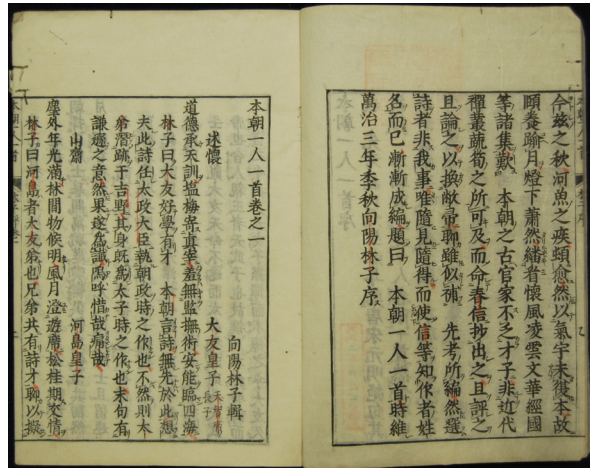 今茲之秋河魚之疾頓愈然以氣宇未復本故
頤養踰月燈下蕭然繙看懷風凌雲文華經國
等諸集歎 本朝之古官家不乏才子非近代
禪叢蔬筍之所可及而命春信抄出之且評之
且論之以換敵電聊雖似補 先考所編然選
詩者非我事唯隨見隨得而使信等知作者姓
名而已漸漸成編題曰 本朝一人一首時維
萬治三年季秋向陽林子序
本朝一人一首卷之一
向陽林子輯
述懷 大友皇子 天智帝長子
道德承天訓塩梅寄真宰羞無監撫術安能臨四海
林子曰大友好學有才 本朝言詩無先於此想
夫此詩任太政大臣執朝政時之作也不然則大
弟潛跡于吉野其身既為太子時之作也末句有
謙遜之意然果遂為讖嗚呼惜哉痛哉
山齋 河島皇子
塵外年光滿林間物候明風月澄遊席松桂期交情
林子曰河島者大友弟也兄弟共有詩才聊以擬